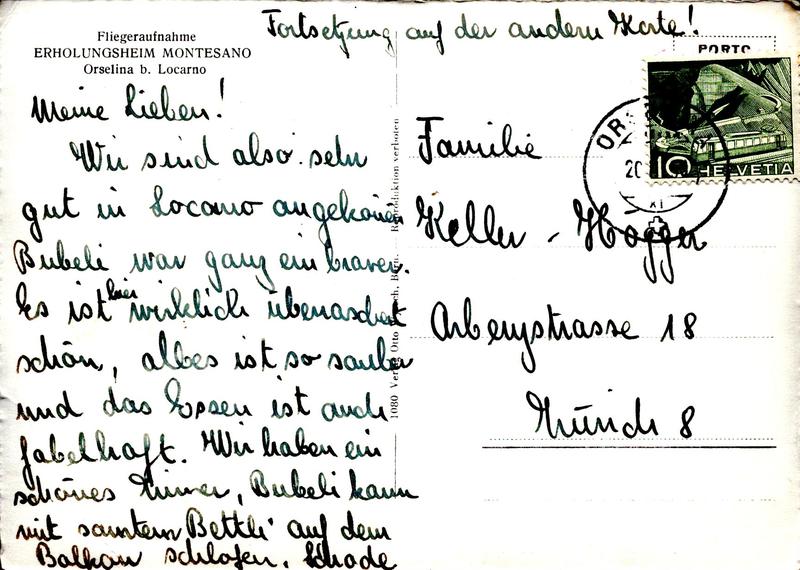 Fortsetzung auf der andern Karte!
Fliegeraufnahme
ERHOLUNGSHEIM MONTESANO
Orselina b. Locarno
Meine Lieben!
Wir sind also sehr
gut in Locarno angekommen
Bubeli war ganz ein braver.
Es ist hier wirklich überraschent
schön, alles ist so sauber
und das Essen ist auch
fabelhaft. Wir haben ein
schönes Zimmer, Bubeli kann
mit samtem Bettli auf dem
Balkon schlafen. Schade
1080 Verlag Otto
Reproduktion verboten
PORTO
10 HELVETIA
OR
20
XI
Familie
Keller - Hogger
Arbergstrasse 18
Zürich 8